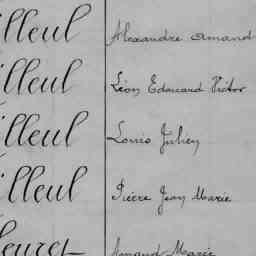 illeul Alexandre Amand
illeul Léon Edouard Victor
illeul Louis Julien
illeul Pierre Jean Marie
leuret Armand Marie